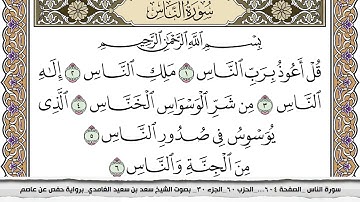 سُورَةُ النَّاسِ
بِسْمِ اللَّهِ الرَّحْمَٰنِ الرَّحِيمِ
قُلْ أَعُوذُ بِرَبِّ النَّاسِ ١ مَلِكِ النَّاسِ ٢ إِلَٰهِ
النَّاسِ ٣ مِن شَرِّ الْوَسْوَاسِ الْخَنَّاسِ ٤ الَّذِى
يُوَسْوِسُ فِى صُدُورِ النَّاسِ ٥
مِنَ الْجِنَّةِ وَالنَّاسِ ٦
سورة الناس _الصفحة ٦٠٤_... الحزب ٦٠_الجزء ٣٠_ بصوت الشيخ سعد بن سعيد الغامدي_برواية حفص عن عاصم